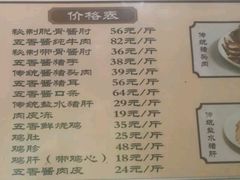 价格表
秘制脱骨酱肘 56元/斤
五香酱纯牛肉 82元/斤
秘制带骨酱肘 36元/斤
五香酱猪手 38元/斤
传统酱猪头肉 39元/斤
五香酱猪耳 54元/斤
五香酱口条 64元/斤
传统盐水猪肝 29元/斤
肉皮冻 19元/斤
五香鲜烧鸡 35元/斤
鸡肚 25元/斤
鸡胗 48元/斤
鸡肝（带鸡心） 18元/斤
五香酱肉皮 24元/斤
传统猪头肉
传统盐水猪肝